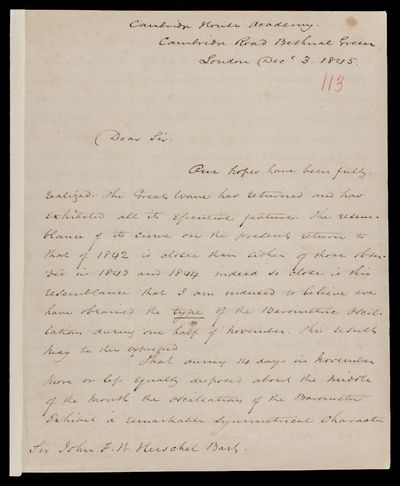 Cambridge House Academy.
Cambridge Road Bethnal Green
London Decr 3. 1845.
113
Dear Sir.
Our hopes have been fully
realized. The Great Wave has returned and has
exhibited all its Essential features. The resem-
blance of its curve on the present return to
that of 1842 is closer than either of those obser-
ved in 1843 and 1844 indeed so close is this
resemblance that I am induced to believe we
have obtained the type of the Barometric Oscil-
lations during one half of November. This result
may be thus expressed
That during 14 days in November
more or less equally disposed about the middle
of the month the oscillations of the Barometer
Exhibit a remarkable symmetrical Character
Sir John F. W. Herschel Bart.